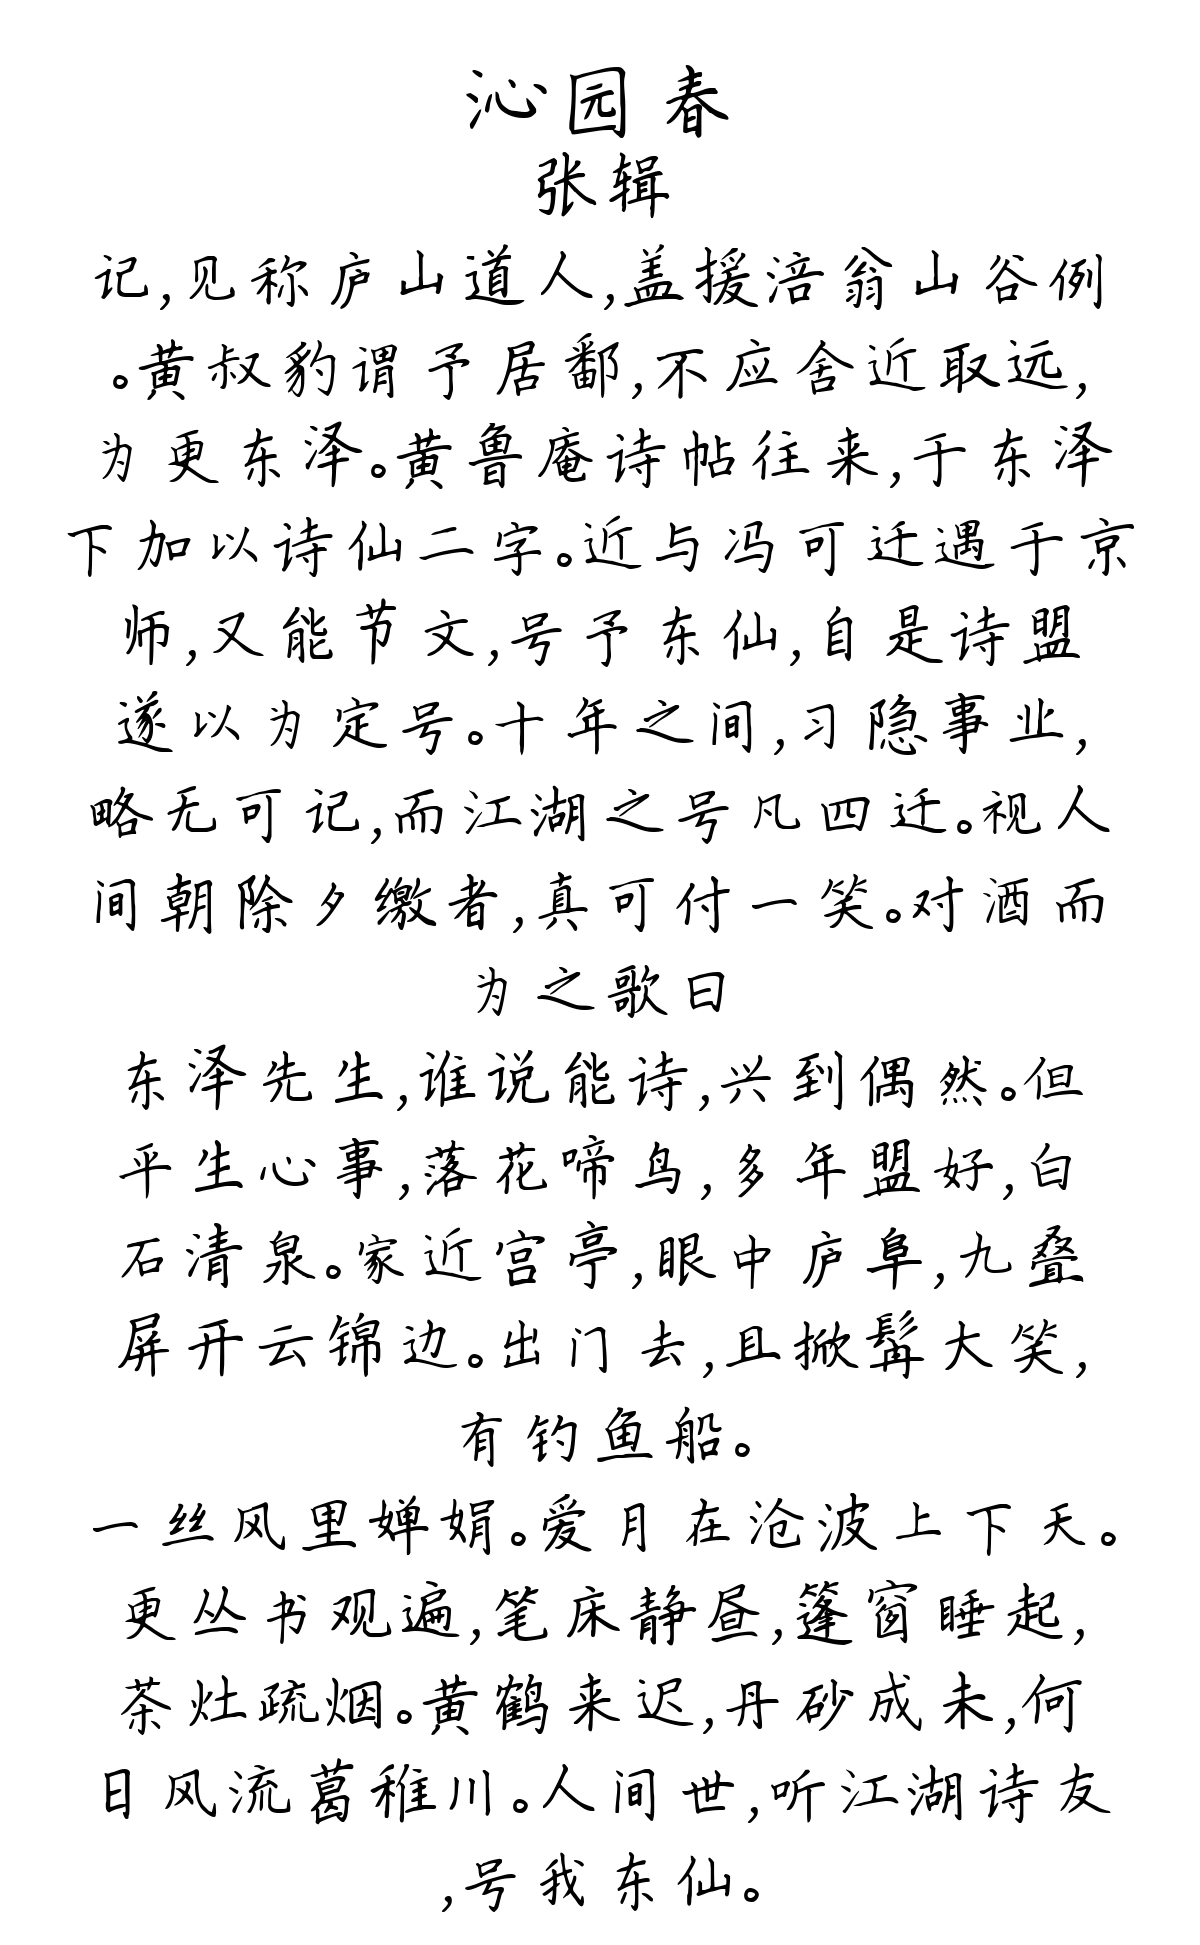 沁园春
张辑
记,见称庐山道人,盖援涪翁山谷例
。黄叔豹谓予居鄱,不应舍近取远,
为更东泽。黄鲁庵诗帖往来,于东泽
下加以诗仙二字。近与冯可迁遇于京
师,又能节文,号予东仙,自是诗盟
遂以为定号。十年之间,习隐事业,
略无可记,而江湖之号凡四迁。视人
间朝除夕缴者,真可付一笑。对酒而
为之歌曰
东泽先生,谁说能诗,兴到偶然。但
平生心事,落花啼鸟,多年盟好,白
石清泉。家近宫亭,眼中庐阜,九叠
屏开云锦边。出门去,且掀髯大笑,
有钓鱼船。
一丝风里婵娟。爱月在沧波上下天。
更丛书观遍,笔床静昼,篷窗睡起,
茶灶疏烟。黄鹤来迟,丹砂成未,何
日风流葛稚川。人间世,听江湖诗友
,号我东仙。